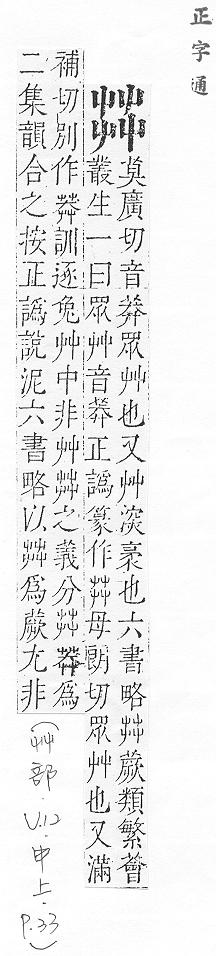 正字通
茻
莫廣切音莽眾艸也又艸深豪也六書略茻蕨類繁薈
叢生一曰眾艸音莽正譌篆作茻母朗切眾艸也又滿
補切別作莽訓逐兔艸中非艸茻之義分茻莽為
二集韻合之按正譌說泥六書略以茻為蕨尤非
(艸部.V.12.申上.P.33)